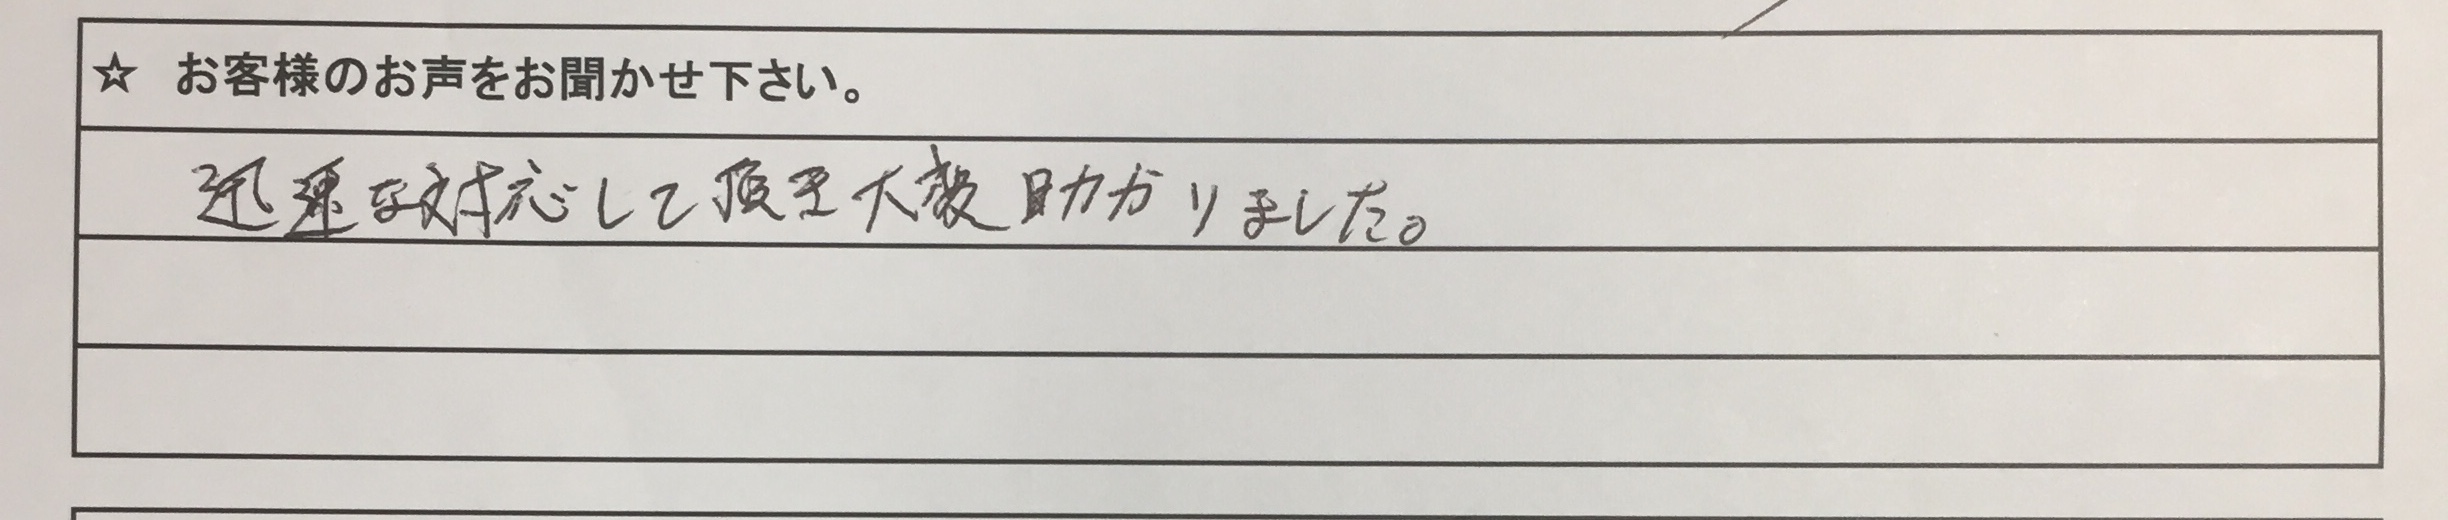 ☆ お客様のお声をお聞かせ下さい。
迅速な対応して頂き大変助かりました。